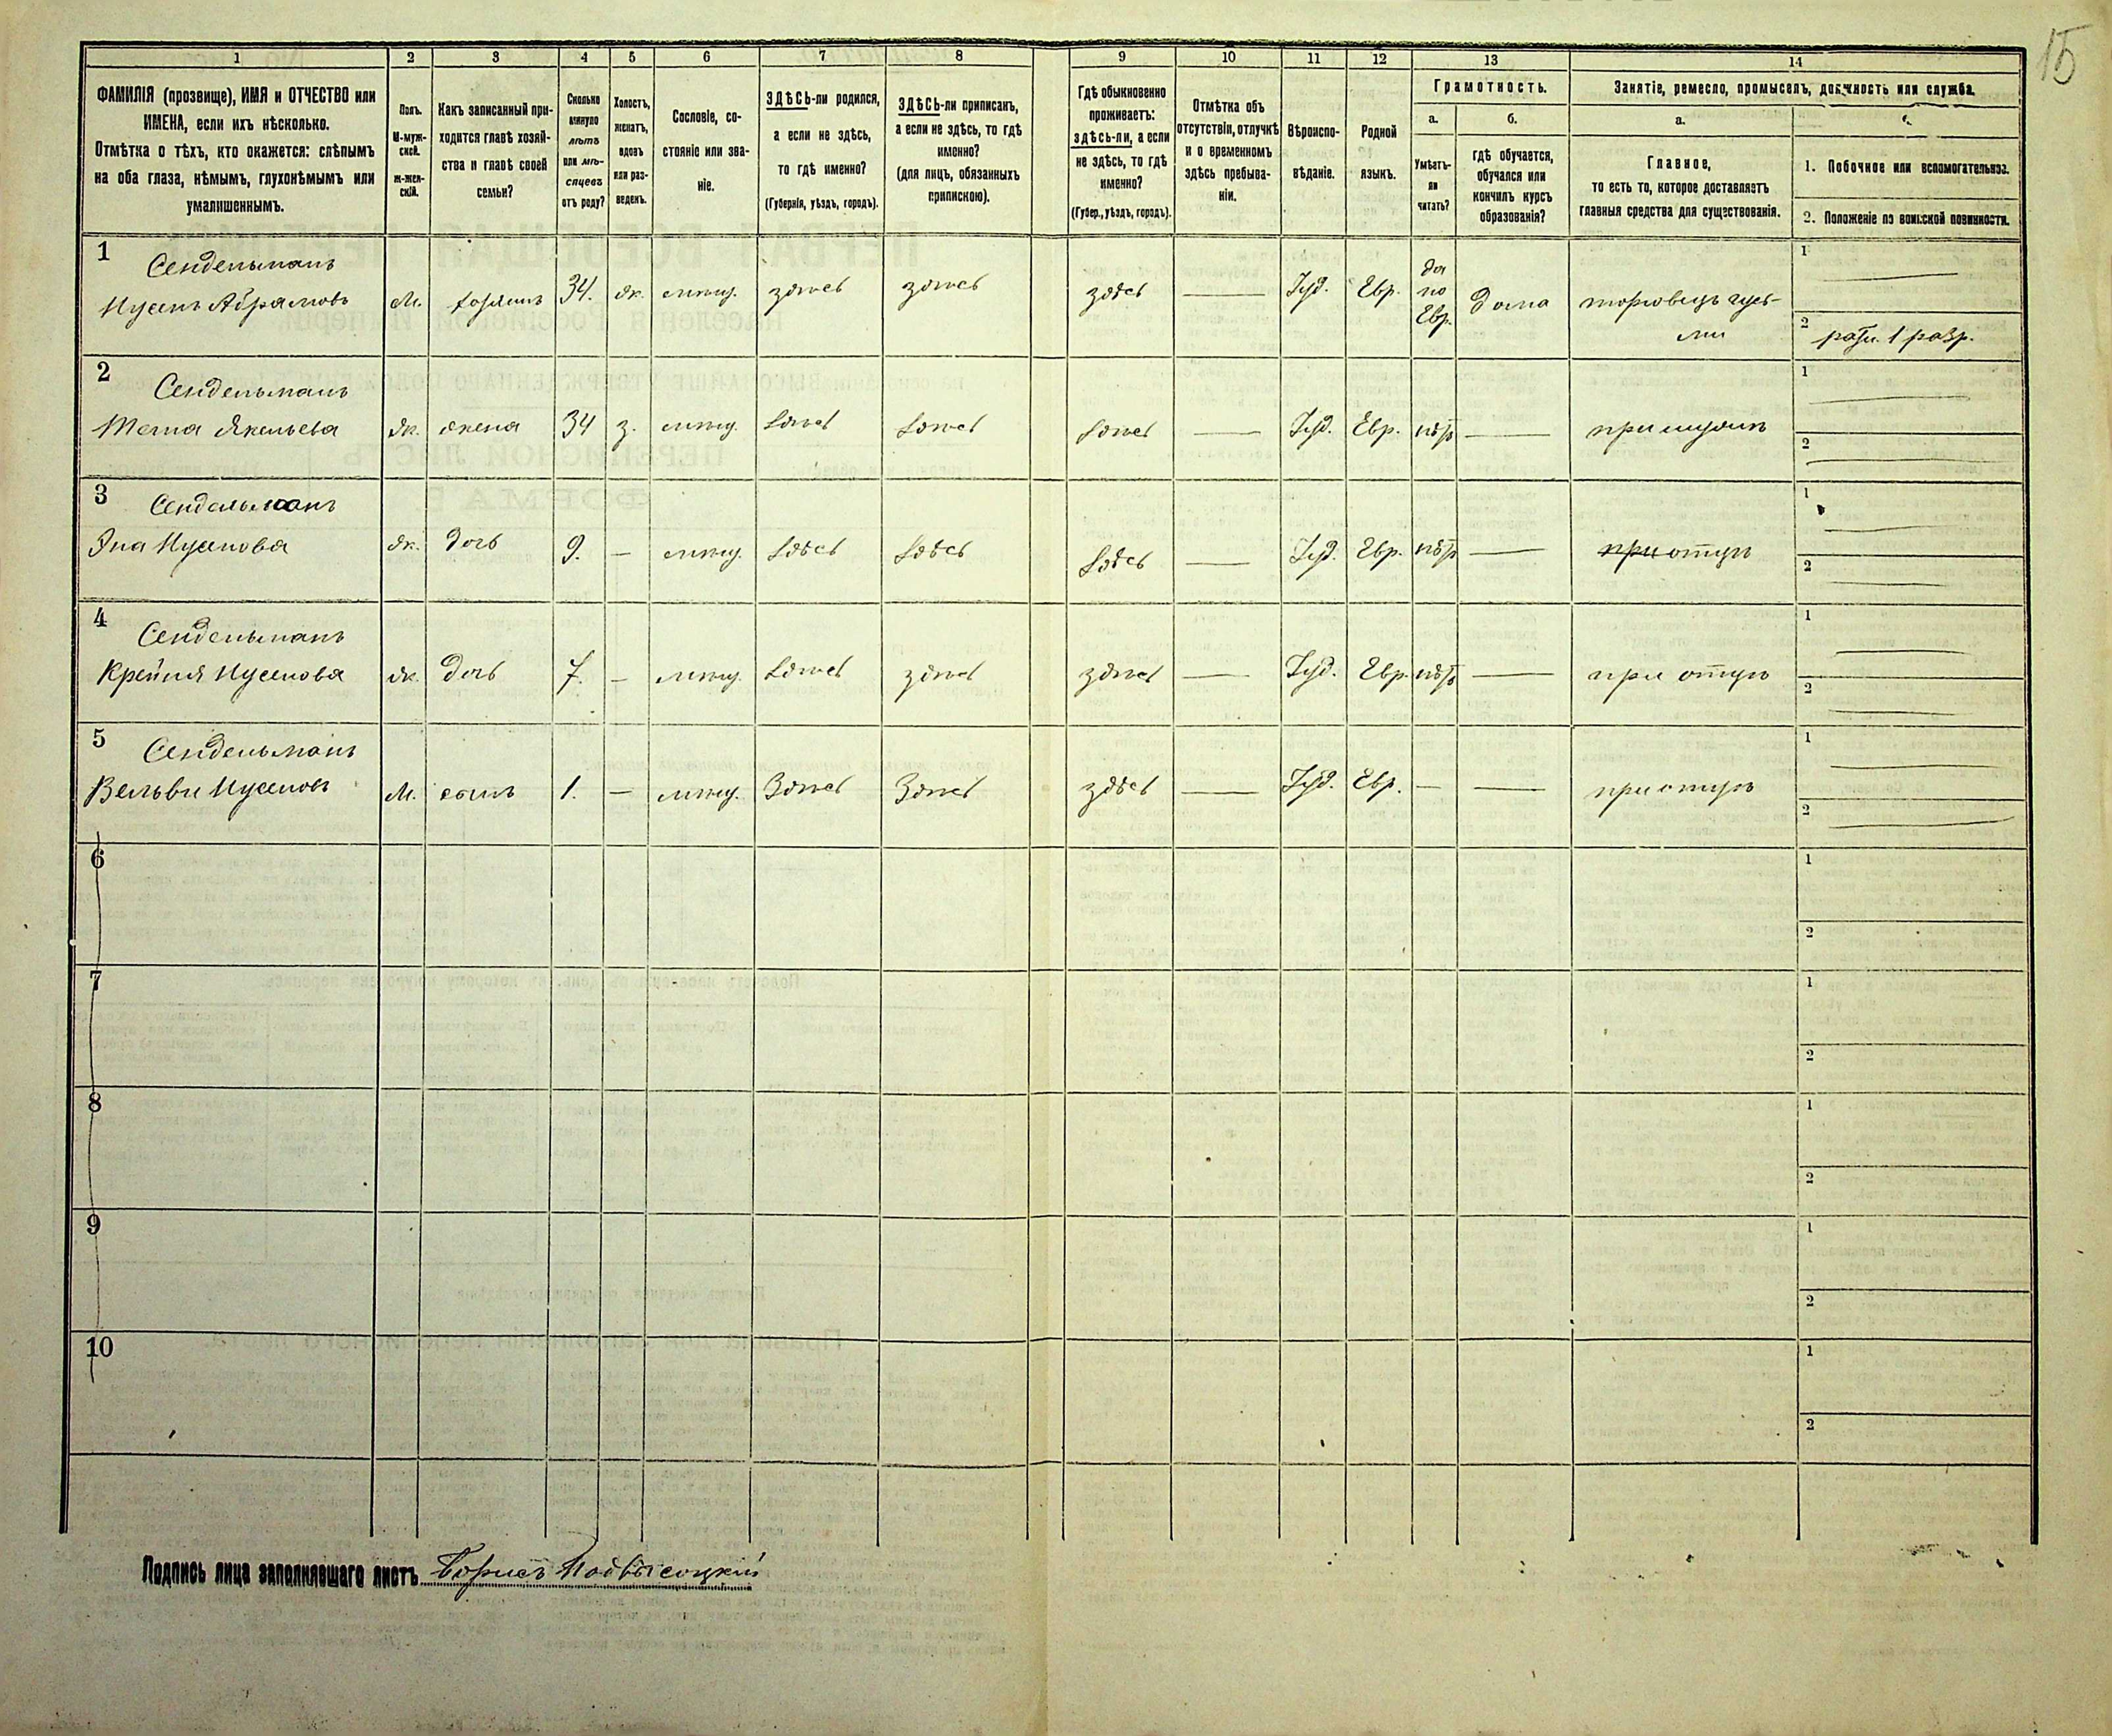 15
1 2 3 4 5 6 7 8 9 10 11 12 13 14
ФАМИЛІЯ (прозвище), ИМЯ и ОТЧЕСТВО или
ИМЕНА, если ихъ нѣсколько.
Отмѣтка о тѣхъ, кто окажется: слѣпымъ
на оба глаза, нѣмымъ, глухонѣмымъ или
умалишеннымъ.
Полъ.
М-муж-
ской.
ж-жен-
скій.
Какъ записанный при-
ходится главѣ хозяй-
ства и главѣ своей
семьи?
Сколько
минуло
лѣтъ
или мѣ-
сяцевъ
отъ роду?
Холостъ,
женатъ,
вдовъ
или раз-
веденъ.
Сословіе, со-
стояніе или зва-
ніе.
ЗДѢСЬ-ли родился,
а если не здѣсь,
то гдѣ именно?
(Губернія, уѣздъ, городъ).
ЗДѢСЬ-ли приписанъ,
а если не здѣсь, то гдѣ
именно?
(для лицъ, обязанныхъ
припискою).
Гдѣ обыкновенно
проживаетъ:
здѣсь-ли, а если
не здѣсь, то гдѣ
именно?
(Губер., уѣздъ, городъ).
Отмѣтка объ
отсутствіи, отлучкѣ
и о временномъ
здѣсь пребыва-
ніи.
Вѣроиспо-
вѣданіе.
Родной
языкъ.
Грамотность.
а.
Умѣетъ-
ли
читать?
б.
гдѣ обучается,
обучался или
кончилъ курсъ
образованія?
Занятіе, ремесло, промыселъ, должность или служба.
а.
Главное,
то есть то, которое доставляетъ
главныя средства для существованія.
1. Побочное или вспомогательное.
2. Положеніе по воинской повинности.
1 Сендельманъ
Нусенъ Абрамовъ М. хозяинъ 34. ж. мѣщ. здѣсь здѣсь здѣсь — Іуд. Евр. да по Евр. дома торговецъ гусь-
ми
1 —
2 ратн. 1 разр.
2 Сендельманъ
Янкельева ж. жена 34 з. мѣщ. здѣсь здѣсь здѣсь — Іуд. Евр. нѣтъ — при мужѣ
1 —
2 —
3 Сендельманъ
Нусенова ж. дочь 9. — мѣщ. здѣсь здѣсь здѣсь — Іуд. Евр. нѣтъ — при отцѣ
1 —
2 —
4 Сендельманъ
Крейня Нусенова ж. дочь 7. — мѣщ. здѣсь здѣсь здѣсь — Іуд. Евр. нѣтъ — при отцѣ
1 —
2 —
5 Сендельманъ
Вельви Нусеновъ М. сынъ 1. — мѣщ. Здѣсь Здѣсь здѣсь — Іуд. Евр. — — при отцѣ
1 —
2 —
6
1
2
7
1
2
8
1
2
9
1
2
10
1
2
Подпись лица заполнявшаго листъ Борисъ Подвысоцкій